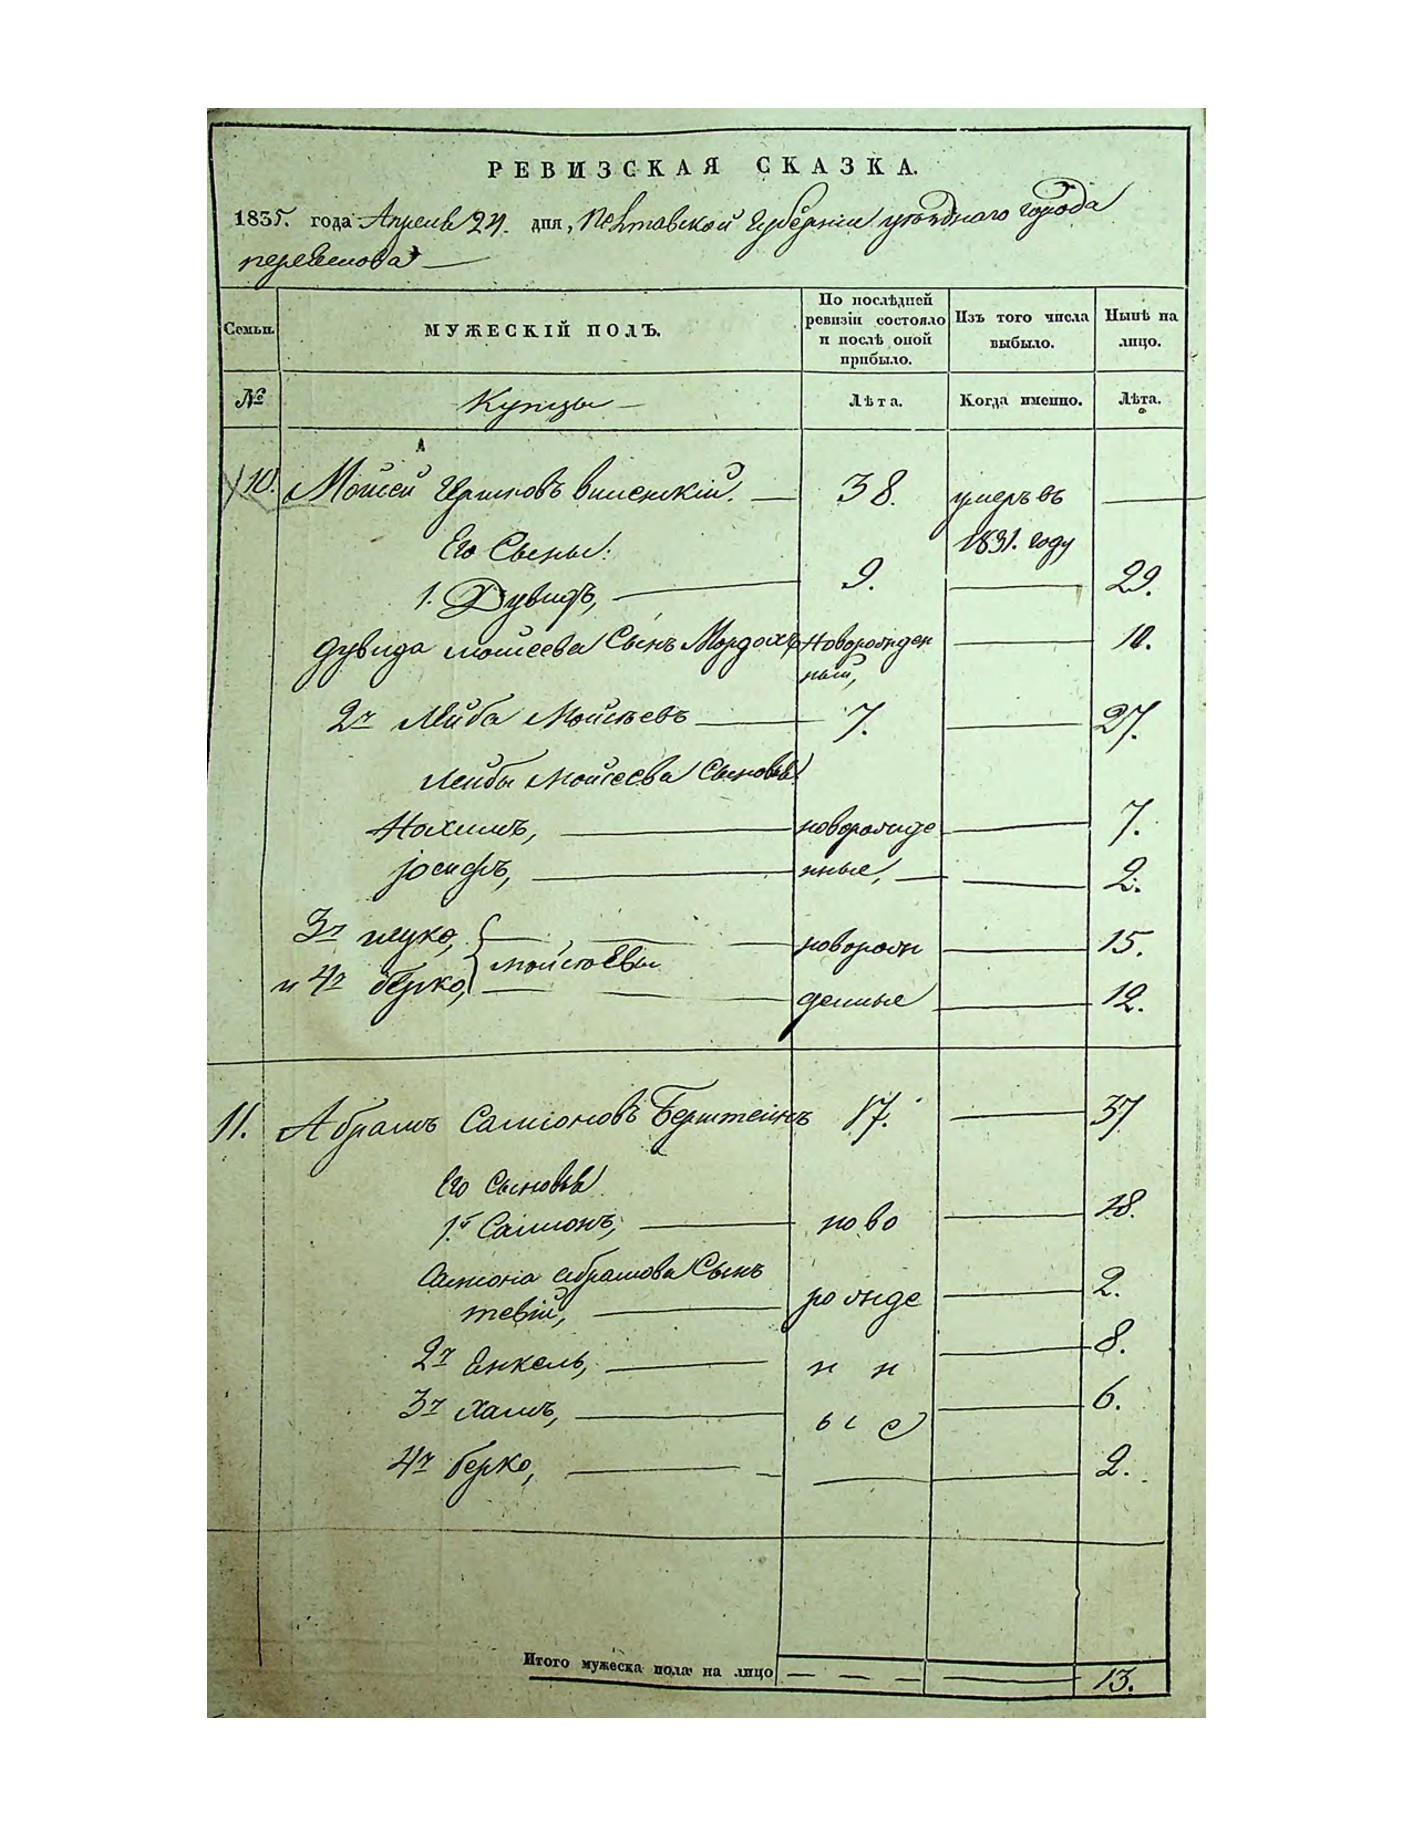 РЕВИЗСКАЯ СКАЗКА.
1835. года Апреля 24. дня, Полтавской Губернии уѣзднаго города
переяслова
Семьи. МУЖЕСКІЙ ПОЛЪ. По послѣдней ревизіи состояло и послѣ оной прибыло. Изъ того числа выбыло. Нынѣ на лицо.
№ Купцы Лѣта. Когда именно. Лѣта.
10. Мойсей Гершковъ виленскій. 38. умеръ въ
1831. году
Его Сыны:
1. Дувидъ, 9. 29.
дувида мойсеева Сынъ Мордохъ Новорожден 10.
ный,
2й Лейба Мойсѣевъ 7. 27.
Лейбы Мойсеева Сыновья
Нохимъ, новорожде 7.
іосифъ, нные, 2.
3й шуко, новорож 15.
мойсѣевы
и 4й берко, денные 12.
11. Абрамъ Самсоновъ Бернштейнъ 17. 37
Его Сыновья
1й Самсонъ, ново 18.
Самсона абрамова Сынъ
тевій, рожде 2.
2й Енкель, н н 8.
3й хаимъ, ы е 6.
4й берко, 2.
Итого мужеска пола на лицо 13.